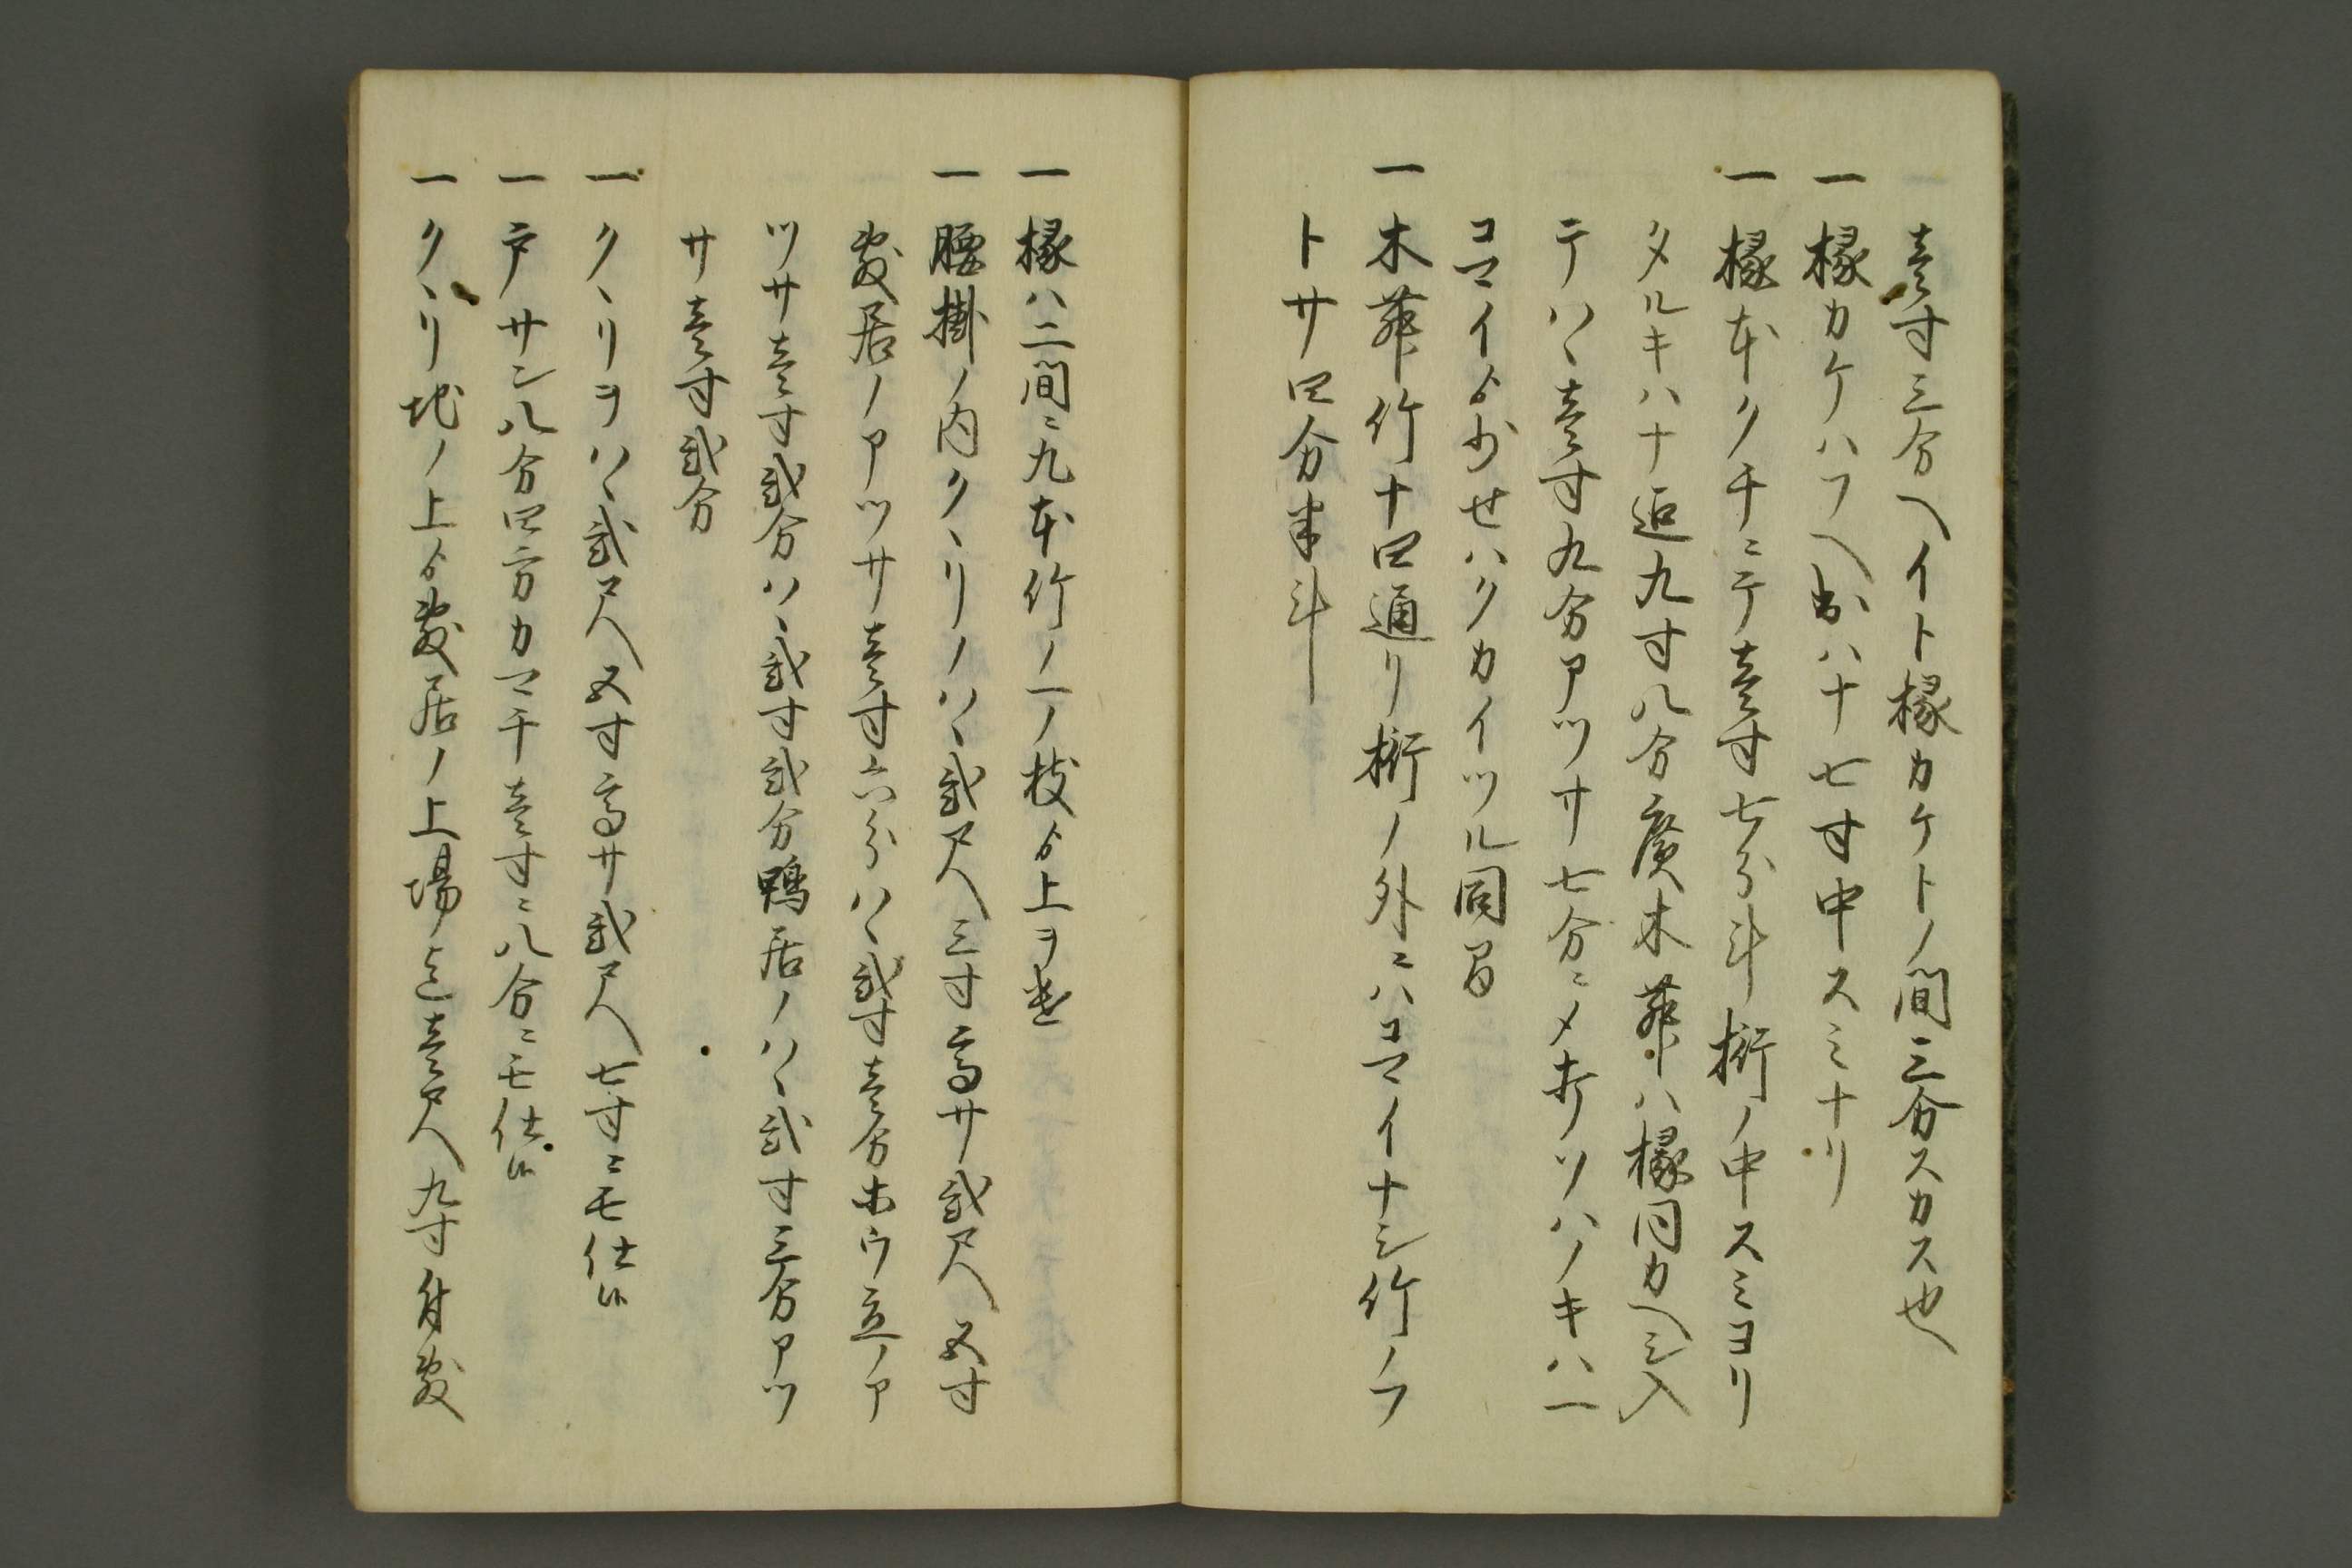 壹寸三分ヘイト椽カケトノ間三分スカス也
一椽カケハフヘ出ハ十七寸中スミナリ
一椽本クチニテ壹寸七分斗桁ノ中スミヨリ
タルキハナ迠九寸八分廣木舞ハ椽同カヘシ入
テハヽ壹寸九分アツサ七分ニメ
ノキハ一
コマイゟ少せハクカイツル同
一木舞竹十四通リ桁ノ外ニハコマイナシ竹ノフ
トサ四分半斗
一椽ハ二間ニ九本竹ノ一ノ枝ゟ上ヲ
一腰掛ノ内クヽリノハヽ弐尺三寸高サ弐尺五寸
敷居ノアツサ壹寸六分ハヽ弐寸壹分ホウ立ノア
ツサ壹寸弐分ハヽ弐寸弐分鴨居ノハヽ弐寸三分アツ
サ壹寸弐分
一クヽリヲハヽ弐尺五寸高サ弐尺七寸ニモ仕候
一戸サン八分四方カマチ壹寸ニ八分ニモ仕候
一クヽリ地ノ上ゟ敷居ノ上場迠壹尺九寸付敷